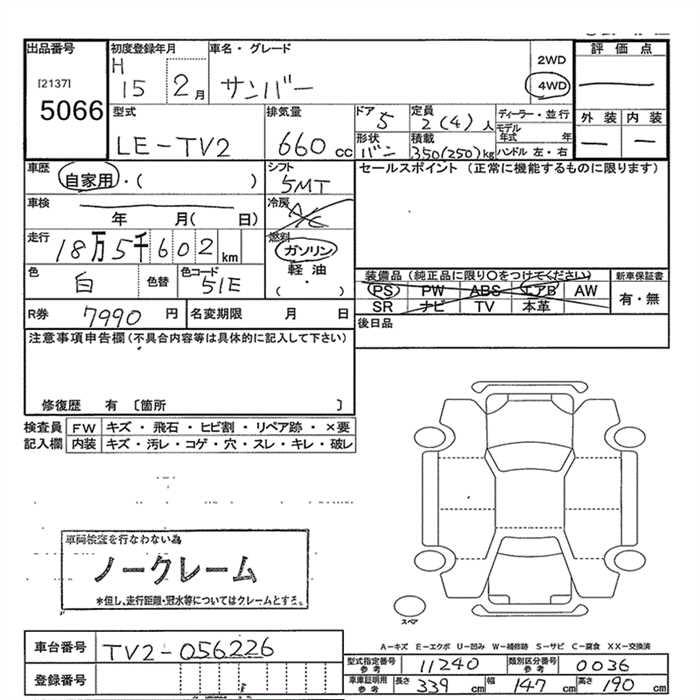 出品番号 初度登録年月 車名・グレード 評価点
[2137] H 15 2月 サンバー 2WD 4WD
5066 外装 内装
型式 排気量 ドア 定員 ディーラー・並行
LE-TV2 660cc 5 2(4)人 モデル年式 年
形状 積載 ハンドル 左・右
バン 350(250)kg
車歴 シフト セールスポイント (正常に機能するものに限ります)
自家用・( ) 5MT
車検 冷房
年 月( 日) A/C
走行 燃料
18万5千602km ガソリン
色 色替 色コード 軽油
白 51E ( ・ )
装備品(純正品に限り○をつけてください) 新車保証書
PS PW ABS エアB AW 有・無
SR ナビ TV 本革
R券 7990円 名変期限 月 日 後日品
注意事項申告欄(不具合内容等は具体的に記入して下さい)
修復歴 有 〔箇所 〕
検査員 FW キズ・飛石・ヒビ割・リペア跡・×要
記入欄 内装 キズ・汚レ・コゲ・穴・スレ・キレ・破レ
車両検査を行なわない為
ノークレーム
*但し、走行距離・冠水等についてはクレームとする。
スペア
A-キズ E-エクボ U-凹み W-補修跡 S-サビ C-腐食 XX-交換済
車台番号 TV2-056226
登録番号
型式指定番号 参考 11240 類別区分番号 参考 0036
車庫証明用 参考 長さ 339cm 幅 147cm 高さ 190cm